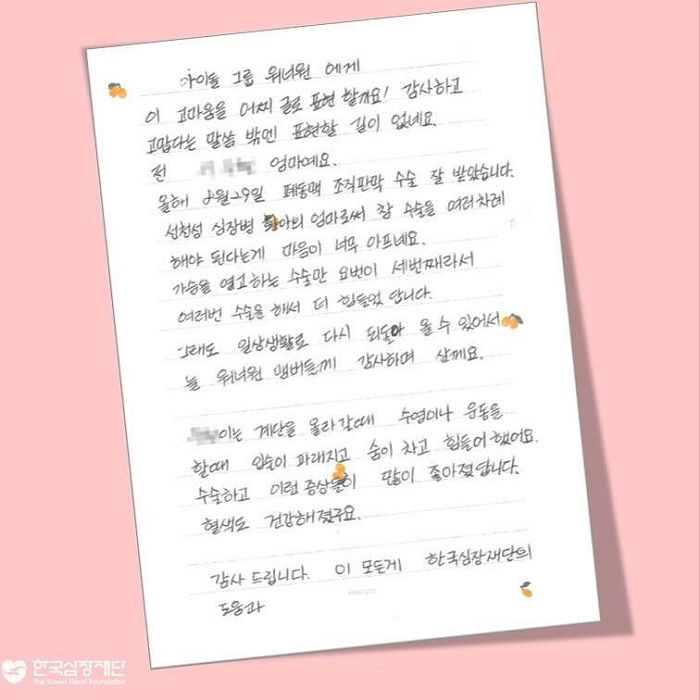 아이돌 그룹 워너원 에게
이 고마움을 어찌 글로 표현 할까요! 감사하고
고맙다는 말씀 밖엔 표현할 길이 없네요.
전 엄마예요.
올해 2월29일 폐동맥 조직판막 수술 잘 받았습니다.
선천성 심장병 환아의 엄마로써 참 수술을 여러차례
해야 된다는게 마음이 너무 아프네요.
가슴을 열고하는 수술만 요번이 세번째라서
여러번 수술을 해서 더 힘들었 답니다.
그래도 일상생활로 다시 되돌아 올 수 있어서
늘 워너원 맴버들께 감사하며 살께요.
이는 계단을 올라갈때 수영이나 운동을
할때 입술이 파래지고 숨이 차고 힘들어 했어요.
수술하고 이런 증상들이 많이 좋아졌답니다.
혈색도 건강해졌구요.
감사 드립니다. 이 모든게 한국심장재단의
도움과
한국심장재단
The Korea Heart Foundation